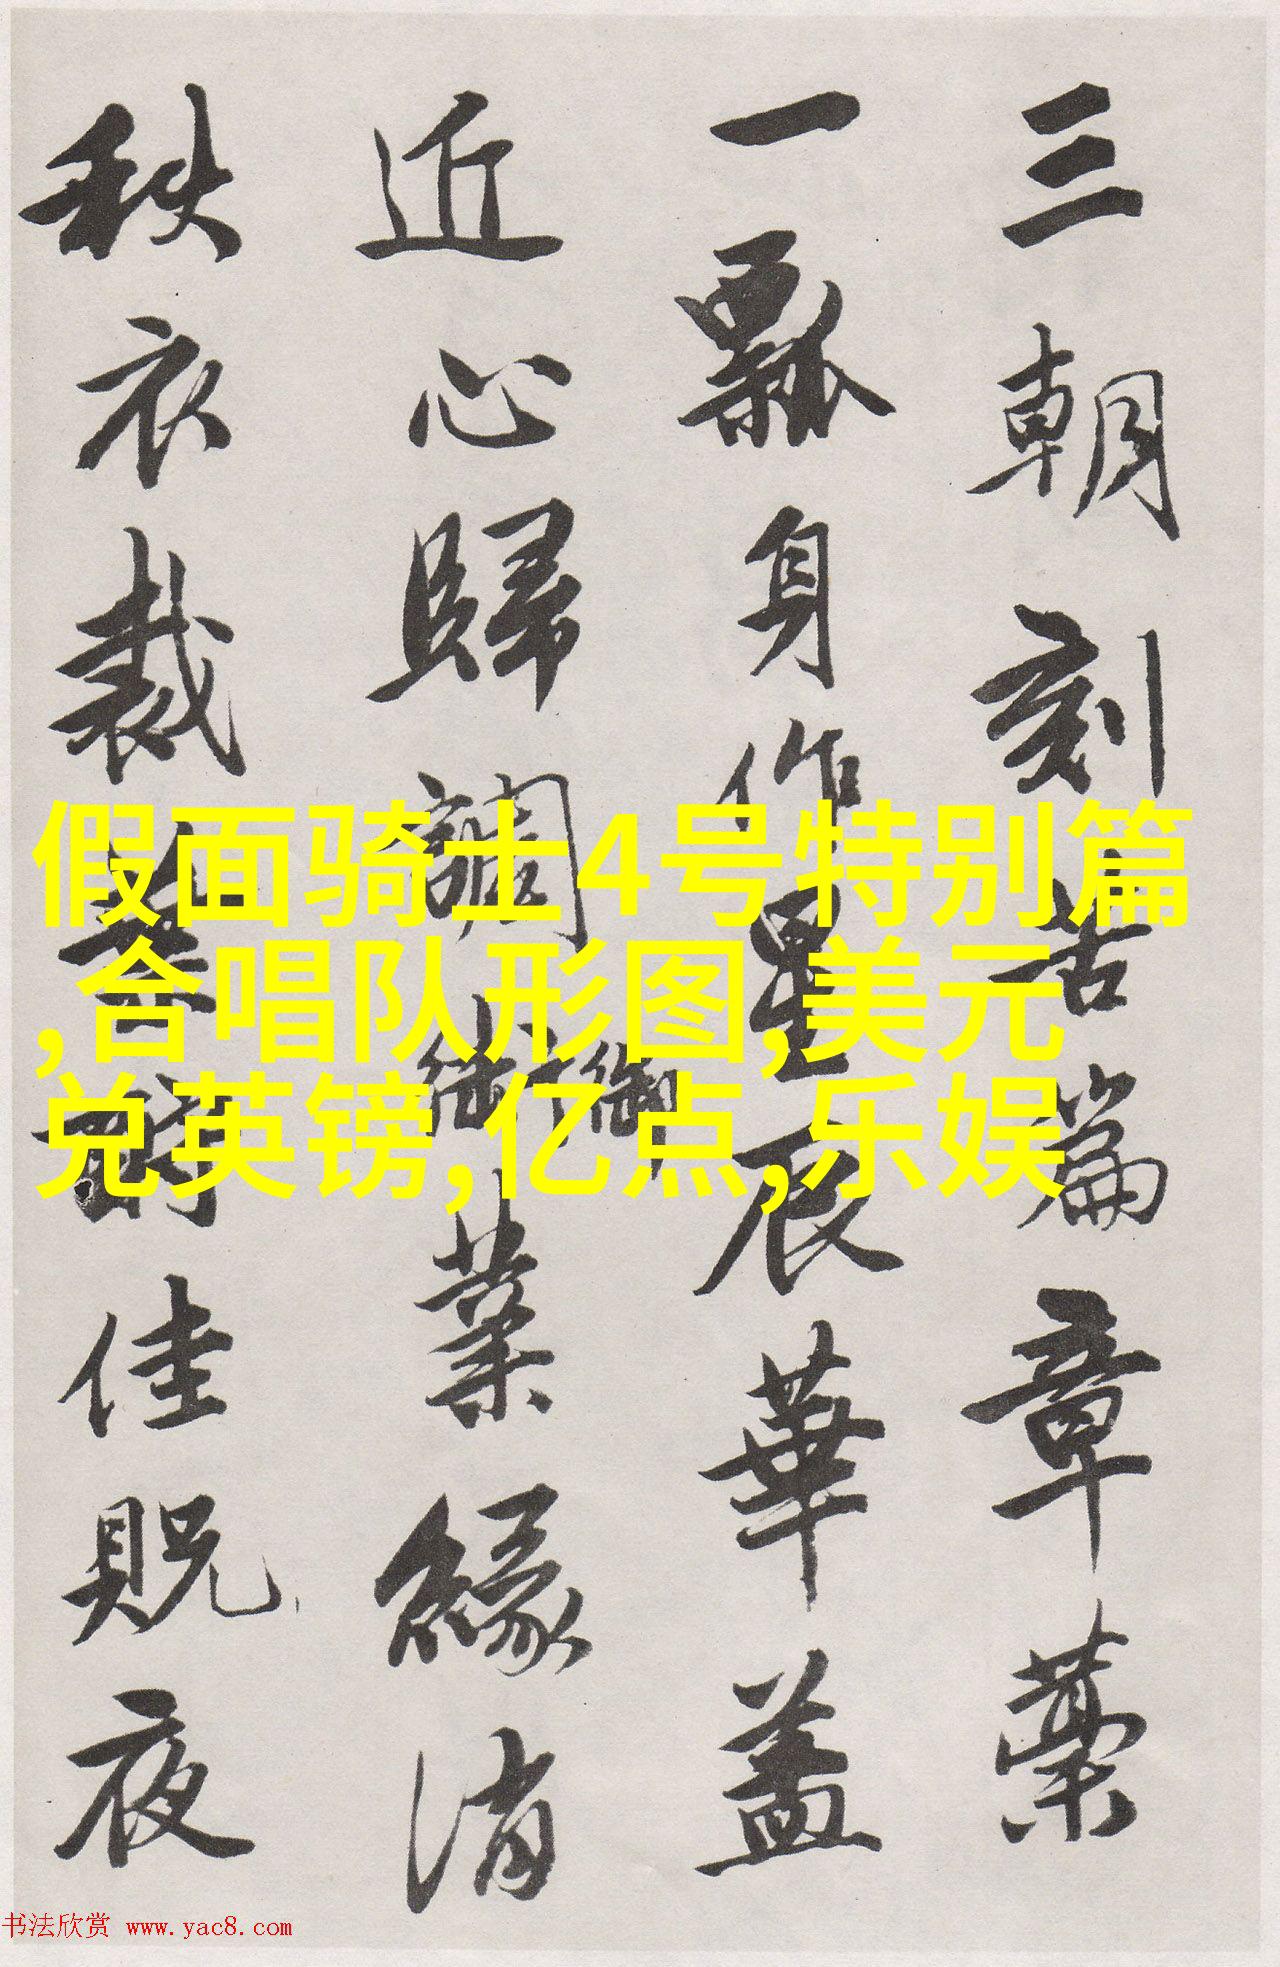 三朝刻苦篇章藁
一瓢身作星辰華蓋
近心歸調御業緣消
秩衣裁
佳貺夜
假面骑士4号特别篇
,合唱队形图,美元
兑英镑,亿点,乐娱
书法欣赏 www.yac8.com